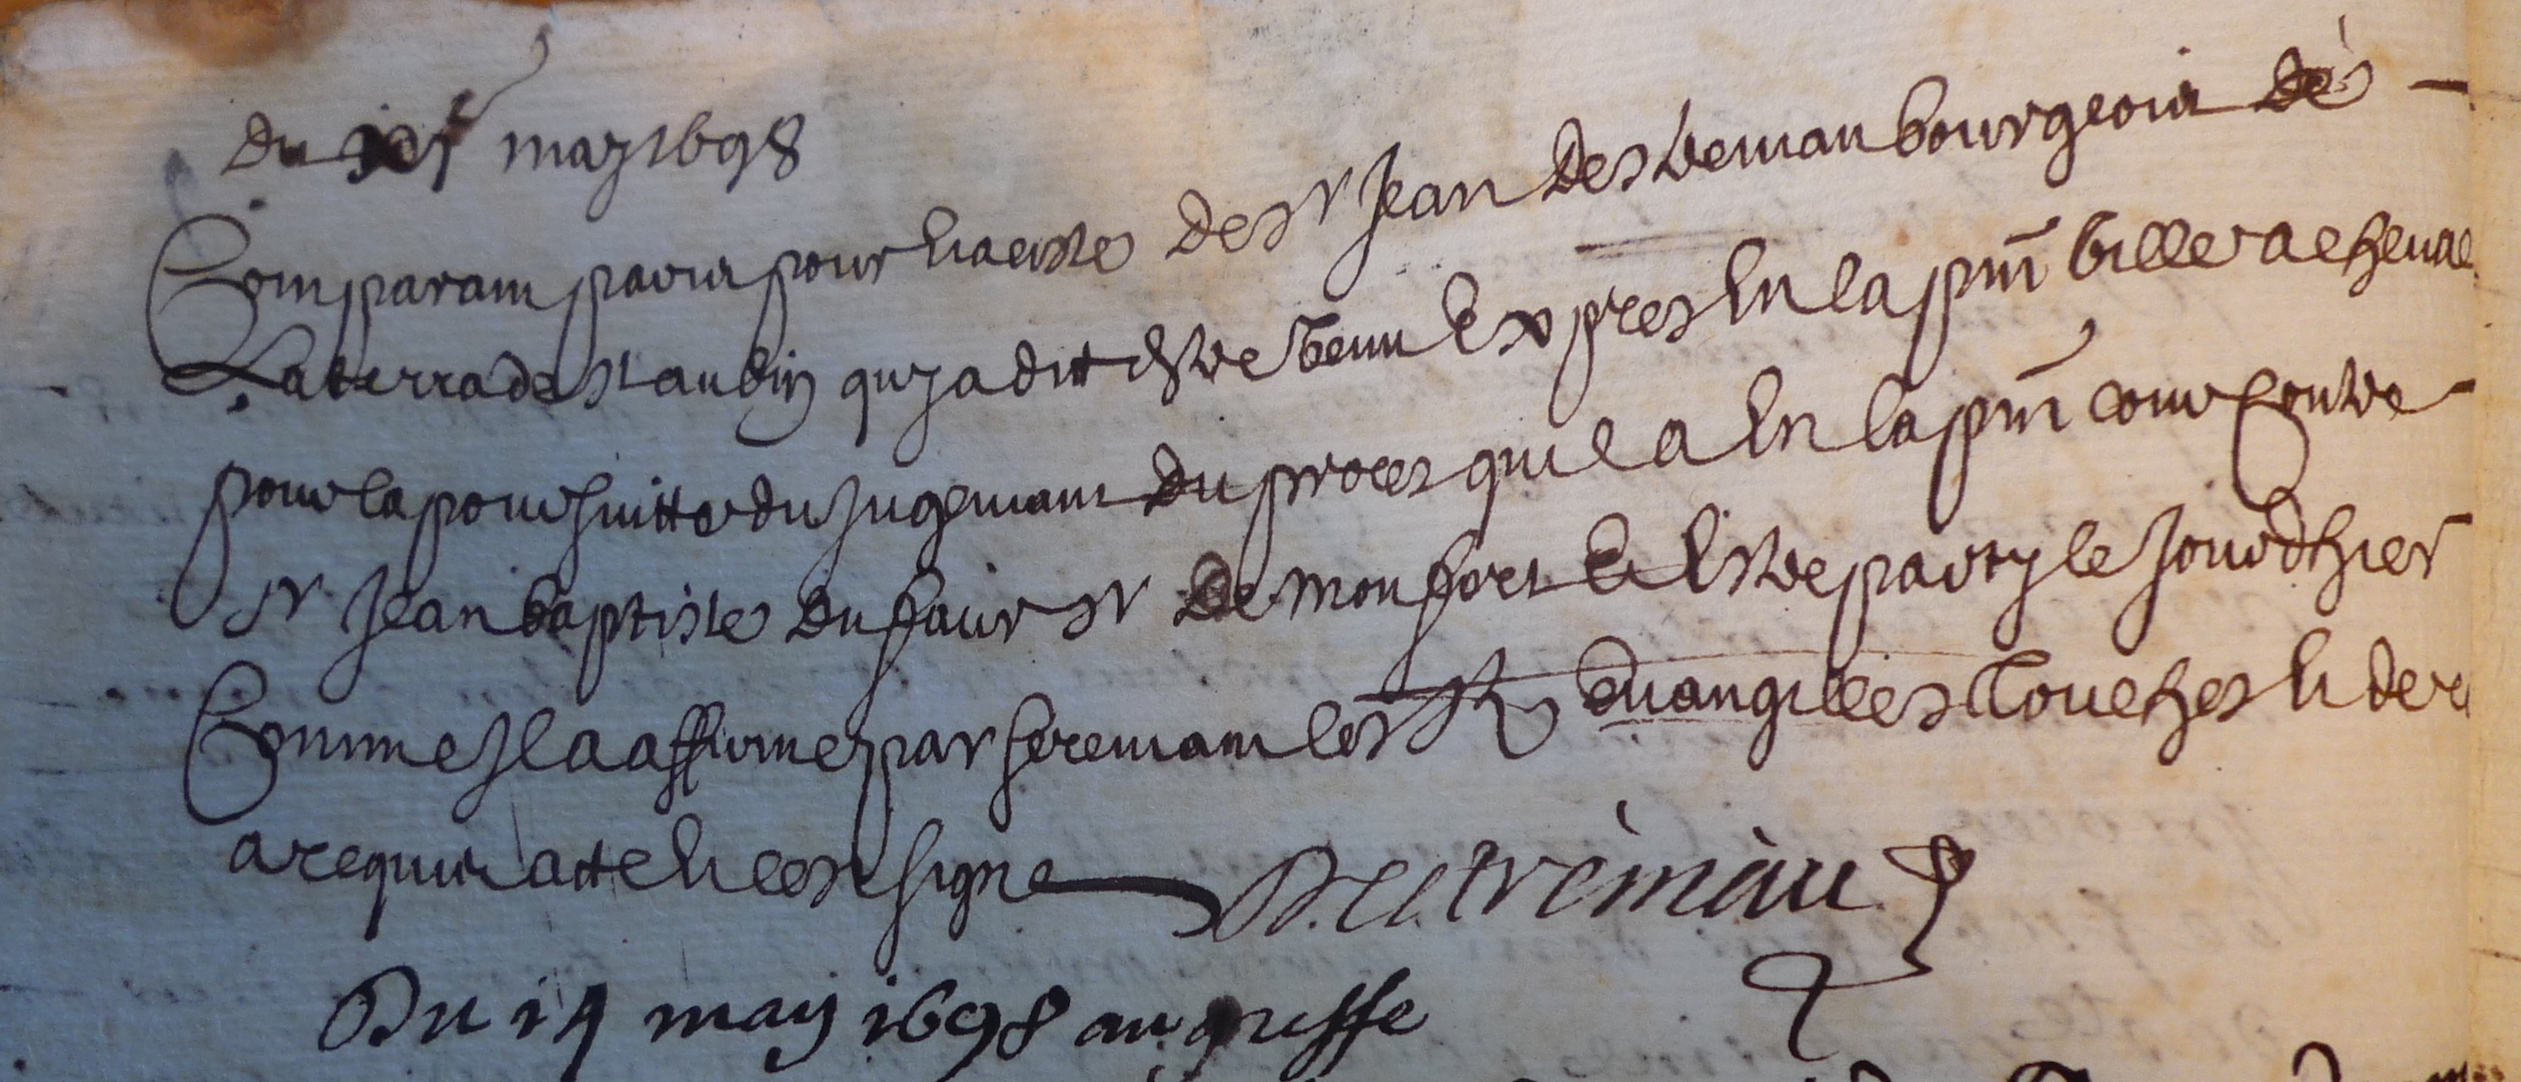 Du may 1698
Comparant par de sr Jean Destreman bourgeois de
Laterrade st aubin quy a dit estre venu Expres En la pnt ville a cheval
pour la poursuitte du Jugemant du proces quil a En la pnt cour Contre
sr Jean baptiste dufaur sr de monfort Et Estre party le Jour dhier
Comme Jl a affirme par seremant les sts Evangilles Touches Et de ce
a requis acte Et cest signe Destrémàu
Du 14 may 1698 au greffe